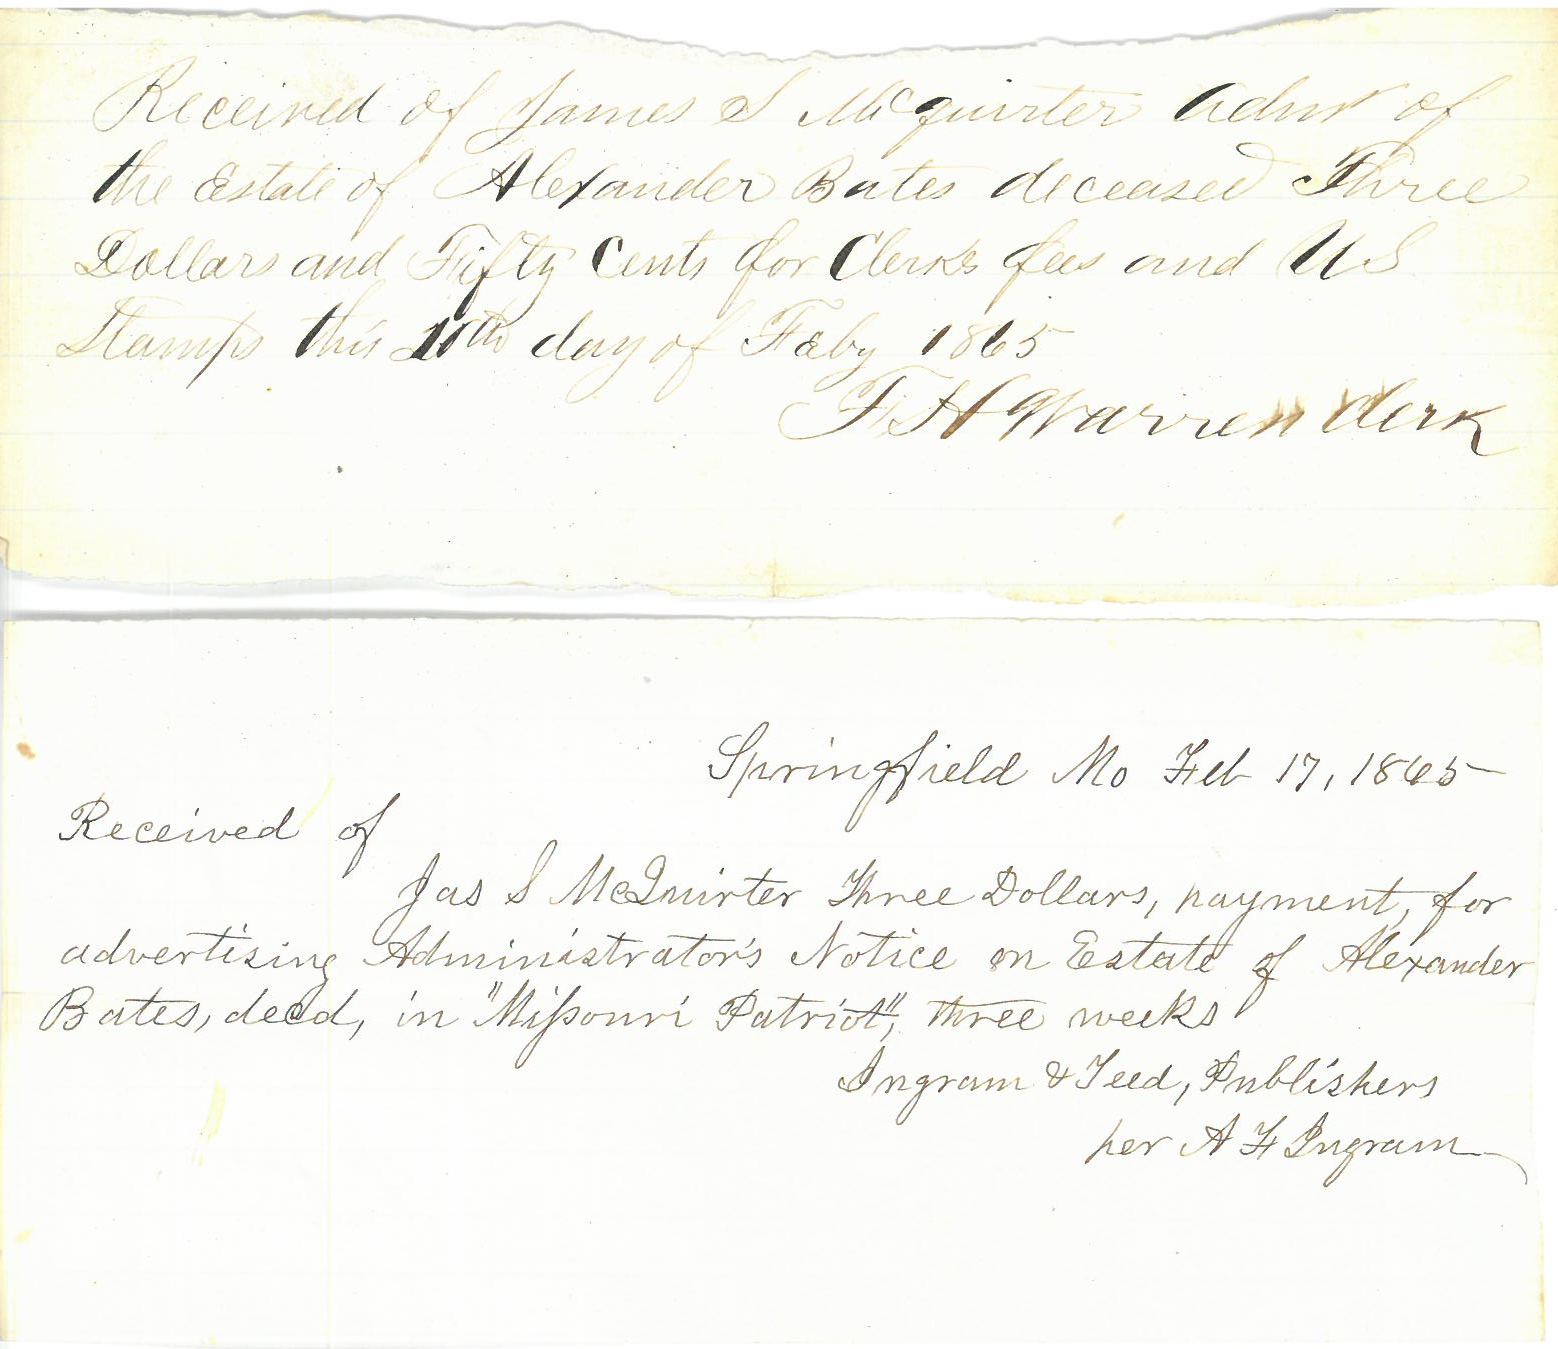 Received of James S McQuirter Admr of
the Estate of Alexander Bates deceased Three
Dollars and Fifty Cents for Clerks fees and US
Stamps this 10th day of Feby 1865
F H Warren Clerk
Springfield Mo Feb 17, 1865
Received of
Jas S McQuirter Three Dollars, payment, for
advertising Administrator's Notice on Estate of Alexander
Bates, decd, in "Missouri Patriot", three weeks
Ingram & Teed, Publishers
per A F Ingram